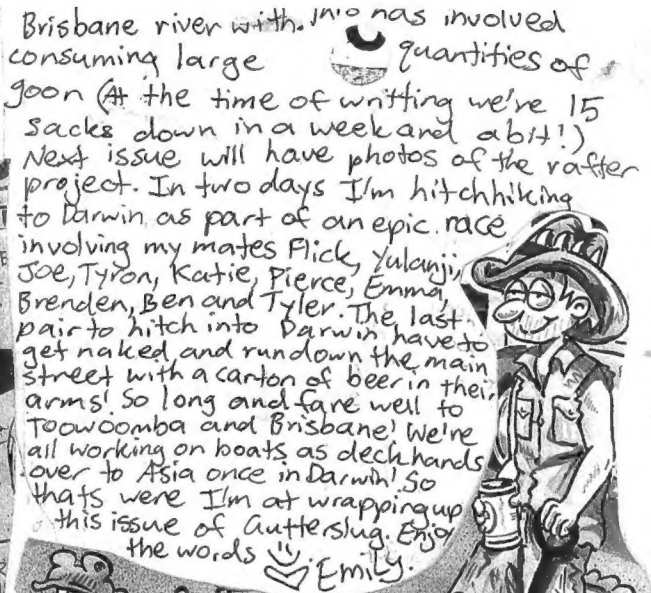 Brisbane river with. This has involved
consuming large quantities of
goon (At the time of writting we're 15
sacks down in a week and a bit!)
Next issue will have photos of the rafter
project. In two days I'm hitchhiking
to Darwin as part of an epic race
involving my mates Flick, Yulanji,
Joe, Tyron, Katie, Pierce, Emma,
Brenden, Ben and Tyler. The last
pair to hitch into Darwin have to
get naked and rundown the main
street with a carton of beer in their
arms! So long and fare well to
Toowoomba and Brisbane! We're
all working on boats as deck hands
over to Asia once in Darwin! So
thats were I'm at wrapping up
this issue of Gutterslug. Enjoy
the words Emily.